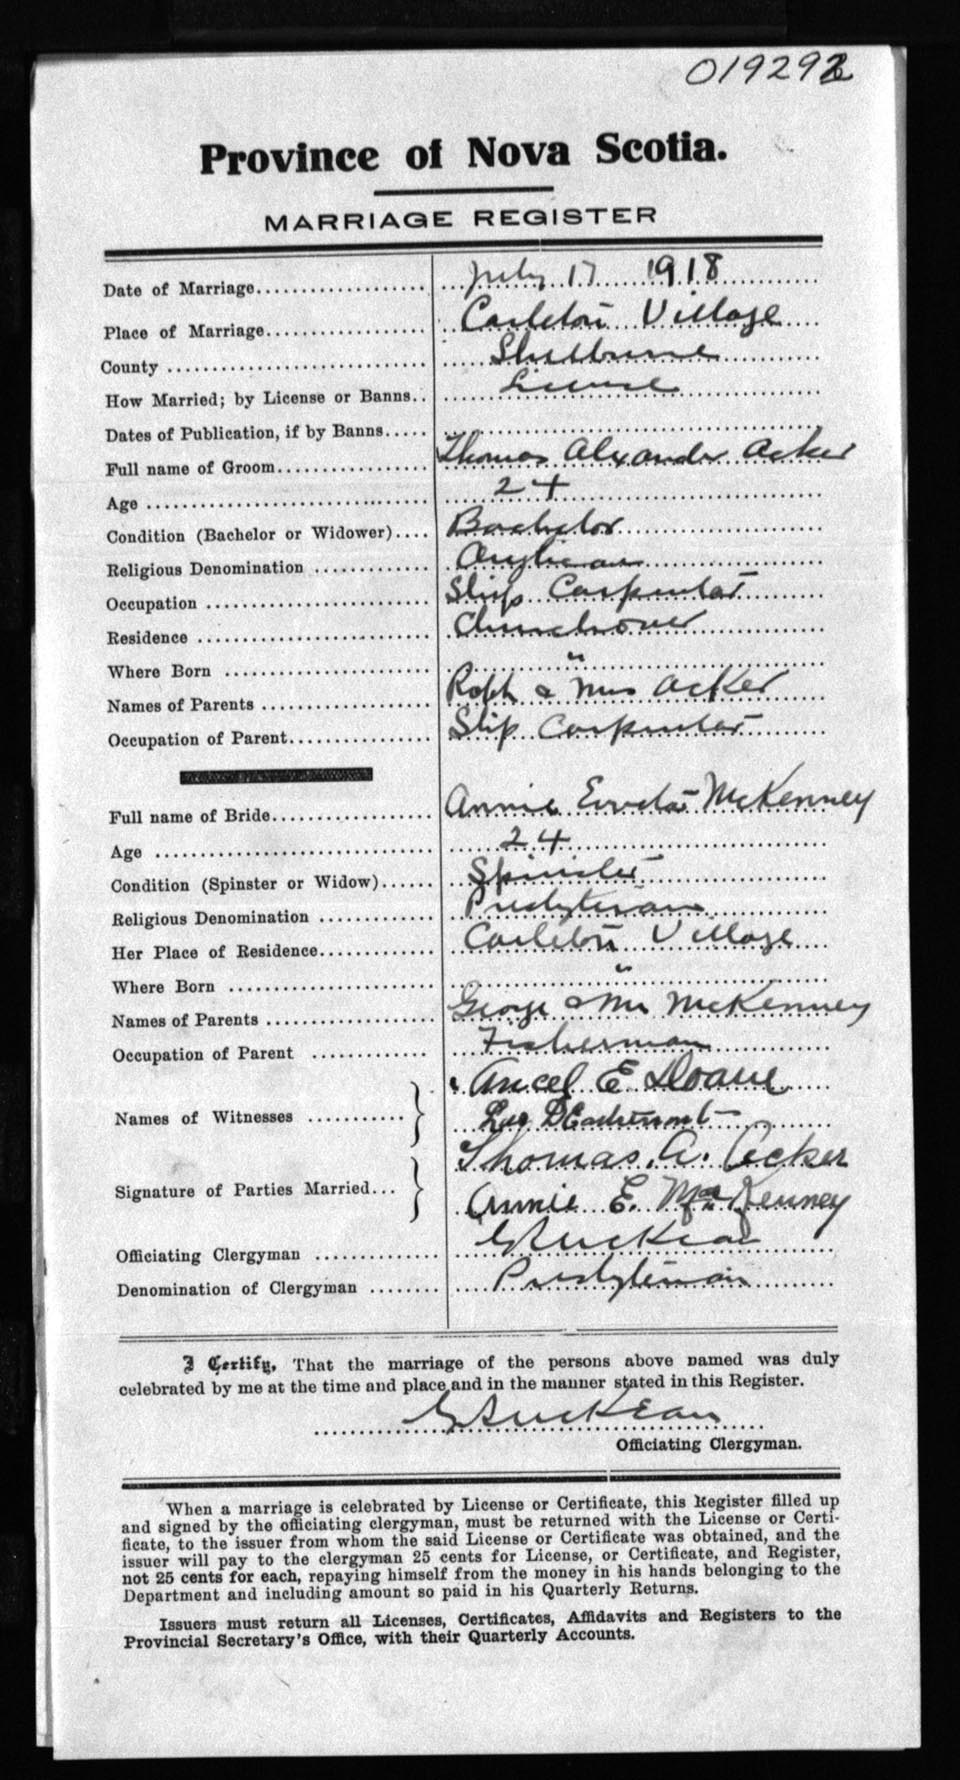 Province of Nova Scotia.
MARRIAGE REGISTER
Date of Marriage.................... July 17 1918
Place of Marriage................... Carleton Village
County .............................. Shelburne
How Married; by License or Banns.. License
Dates of Publication, if by Banns.....
Full name of Groom.................. Thomas Alexander Acker
Age ................................ 24
Condition (Bachelor or Widower).... Bachelor
Religious Denomination ............. Anglican
Occupation ......................... Ship Carpenter
Residence .......................... Churchover
Where Born ......................... "
Names of Parents ................... Robt & Mrs Acker
Occupation of Parent................ Ship Carpenter
Full name of Bride.................. Annie McKenney
Age ................................ 24
Condition (Spinster or Widow)...... Spinster
Religious Denomination ............. Presbyterian
Her Place of Residence............. Carleton Village
Where Born ......................... "
Names of Parents ................... George & Mrs McKenney
Occupation of Parent ............. Fisherman
Ancel E Doane
Names of Witnesses ...........}
Thomas. A. Acker
Signature of Parties Married...}
Annie E. McKenney
Officiating Clergyman ..............
Denomination of Clergyman ........ Presbyterian
I Certify, That the marriage of the persons above named was duly
celebrated by me at the time and place and in the manner stated in this Register.
Officiating Clergyman.
When a marriage is celebrated by License or Certificate, this Register filled up
and signed by the officiating clergyman, must be returned with the License or Certi-
ficate, to the issuer from whom the said License or Certificate was obtained, and the
issuer will pay to the clergyman 25 cents for License, or Certificate, and Register,
not 25 cents for each, repaying himself from the money in his hands belonging to the
Department and including amount so paid in his Quarterly Returns.
Issuers must return all Licenses, Certificates, Affidavits and Registers to the
Provincial Secretary's Office, with their Quarterly Accounts.